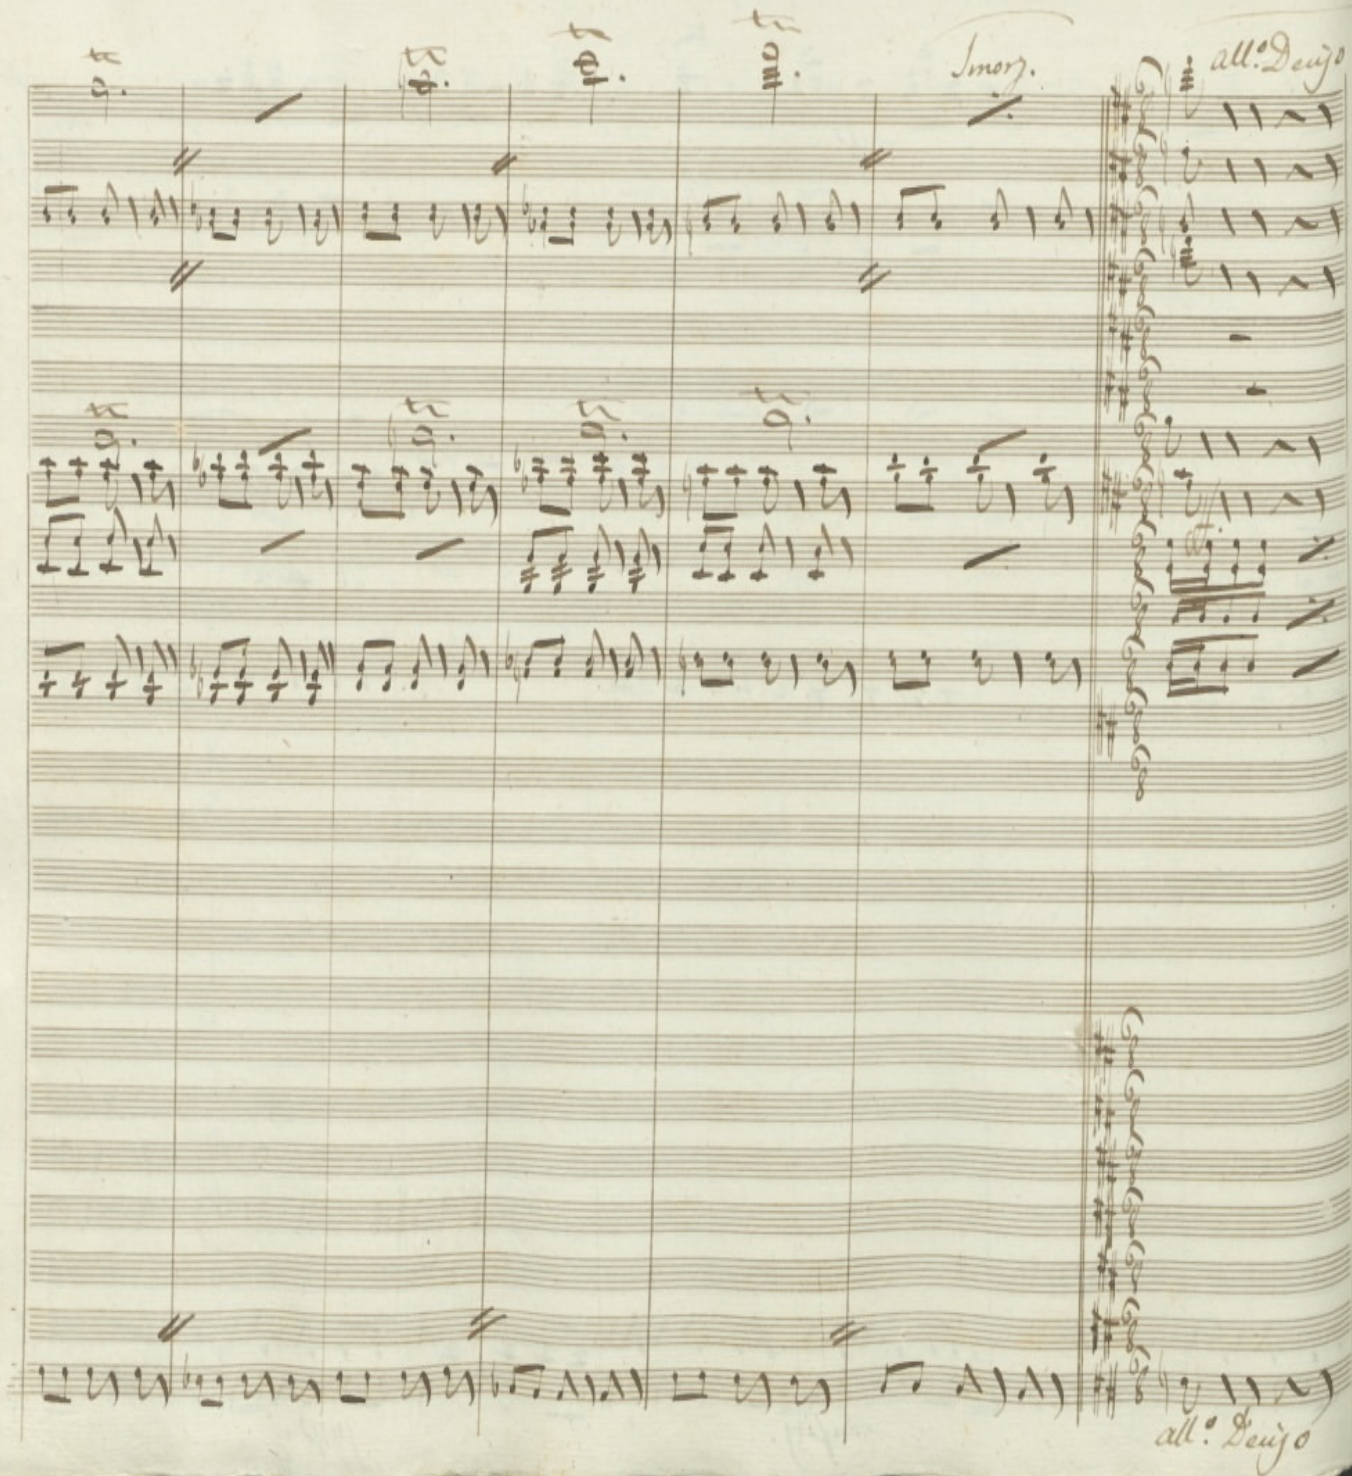 Smorz.
all.º Deciso
ff
all.º Deciso